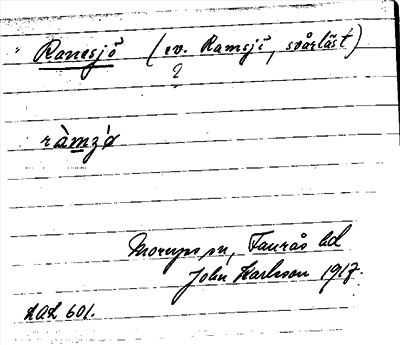 Ranesjö (ev. Ramsjö, svårläst)
?
ràmzø
Morups sn, Faurås hd
John Karlsson 1917.
LAL 601.